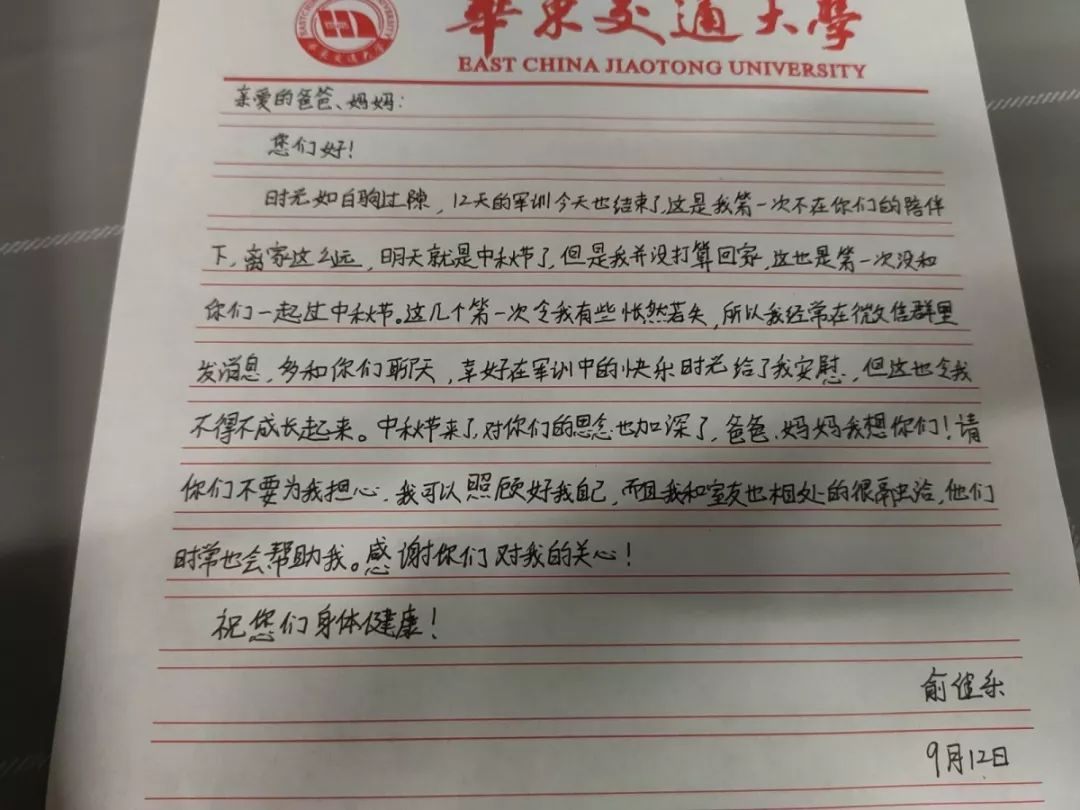 華東交通大學
EAST CHINA JIAOTONG UNIVERSITY
亲爱的爸爸、妈妈:
您们好!
时光如白驹过隙,12天的军训今天也结束了,这是我第一次不在你们的陪伴
下,离家这么远,明天就是中秋节了,但是我并没打算回家,这也是第一次没和
你们一起过中秋节。这几个第一次令我有些怅然若失,所以我经常在微信群里
发消息,多和你们聊天,幸好在军训中的快乐时光给了我安慰,但这也令我
不得不成长起来。中秋节来了,对你们的思念也加深了,爸爸、妈妈我想你们!请
你们不要为我担心,我可以照顾好我自己,而且我和室友也相处的很融洽,他们
时常也会帮助我。感谢你们对我的关心!
祝您们身体健康!
俞佳乐
9月12日